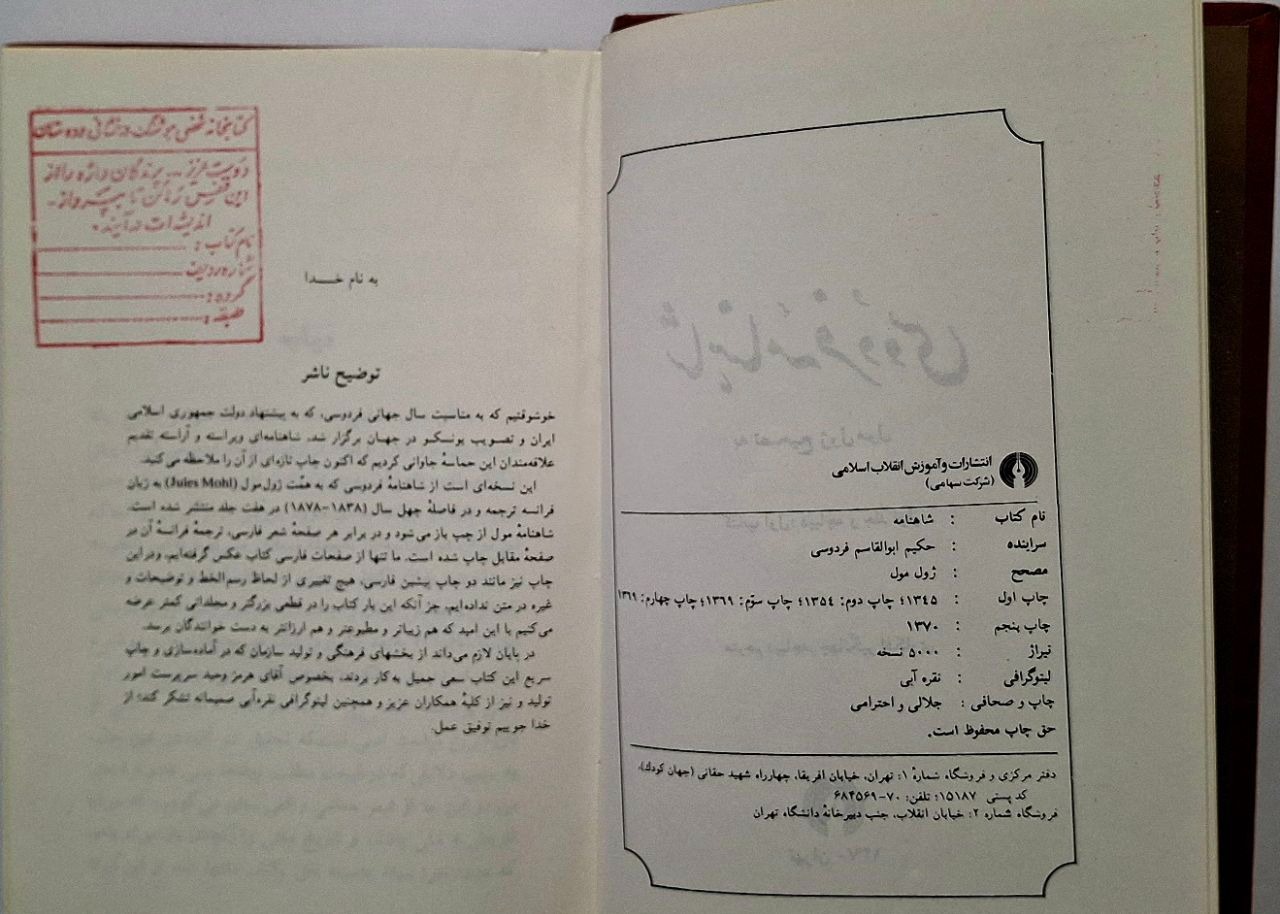 انتشارات و آموزش انقلاب اسلامی
(شرکت سهامی)
نام کتاب : شاهنامه
سراینده : حکیم ابوالقاسم فردوسی
مصحح : ژول مول
چاپ اول : ۱۳۴۵؛ چاپ دوم: ۱۳۵۴؛ چاپ سوّم: ۱۳۶۹؛ چاپ چهارم: ۱۳۶۹
چاپ پنجم : ۱۳۷۰
تیراژ : ۵۰۰۰ نسخه
لیتوگرافی : نقره آبی
چاپ و صحافی : جلالی و احترامی
حق چاپ محفوظ است.
دفتر مرکزی و فروشگاه شمارهٔ ۱: تهران، خیابان افریقا، چهارراه شهید حقانی (جهان کودک)،
کد پستی ۱۵۱۸۷؛ تلفن: ۷۰-۶۸۴۵۶۹
فروشگاه شماره ۲: خیابان انقلاب، جنب دبیرخانهٔ دانشگاه تهران
کتابخانه شخصی هوشنگ درخشانی و دوستان
دوست عزیز ... پرندگان واژه را از
این قفس رها کن تا به پرواز
اندیشه‌ات درآیند.
نام کتاب :
شماره ردیف
گروه :
طبقه :
به نام خـــدا
توضیح ناشر
خوشوقتیم که به مناسبت سال جهانی فردوسی، که به پیشنهاد دولت جمهوری اسلامی
ایران و تصویب یونسکـو در جهـان برگزار شد، شاهنامه‌ای ویراسته و آراسته تقدیم
علاقه‌مندان این حماسهٔ جاوانی کردیم که اکنون چاپ تازه‌ای از آن را ملاحظه می‌کنید.
این نسخه‌ای است از شاهنامهٔ فردوسی که به همّت ژول‌مول (Jules Mohl) به زبان
فرانسه ترجمه و در فاصلهٔ چهل سال (۱۸۳۸-۱۸۷۸) در هفت جلد منتشر شده است.
شاهنامهٔ مول از چپ باز می‌شود و در برابر هر صفحهٔ شعر فارسی، ترجمهٔ فرانسهٔ آن در
صفحهٔ مقابل چاپ شده است. ما تنها از صفحات فارسی کتاب عکس گرفته‌ایم، و در این
چاپ نیز مانند دو چاپ پیشین فارسی، هیچ تغییری از لحاظ رسم‌الخط و توضیحات و
غیره در متن نداده‌ایم، جز آنکه این بار کتاب را در قطعی بزرگتر و مجلداتی کمتر عرضه
می‌کنیم با این امید که هم زیباتر و مطبوعتر و هم ارزانتر به دست خوانندگان برسد.
در پایان لازم می‌داند از بخشهای فرهنگی و تولید سازمان که در آماده‌سازی و چاپ
سریع این کتاب سعی جمیل به‌کار بردند، بخصوص آقای هرمز وحید سرپرست امور
تولید و نیز از کلیهٔ همکاران عزیز و همچنین لیتوگرافی نقره‌آبی صمیمانه تشکر کند؛ از
خدا جوییم توفیق عمل.